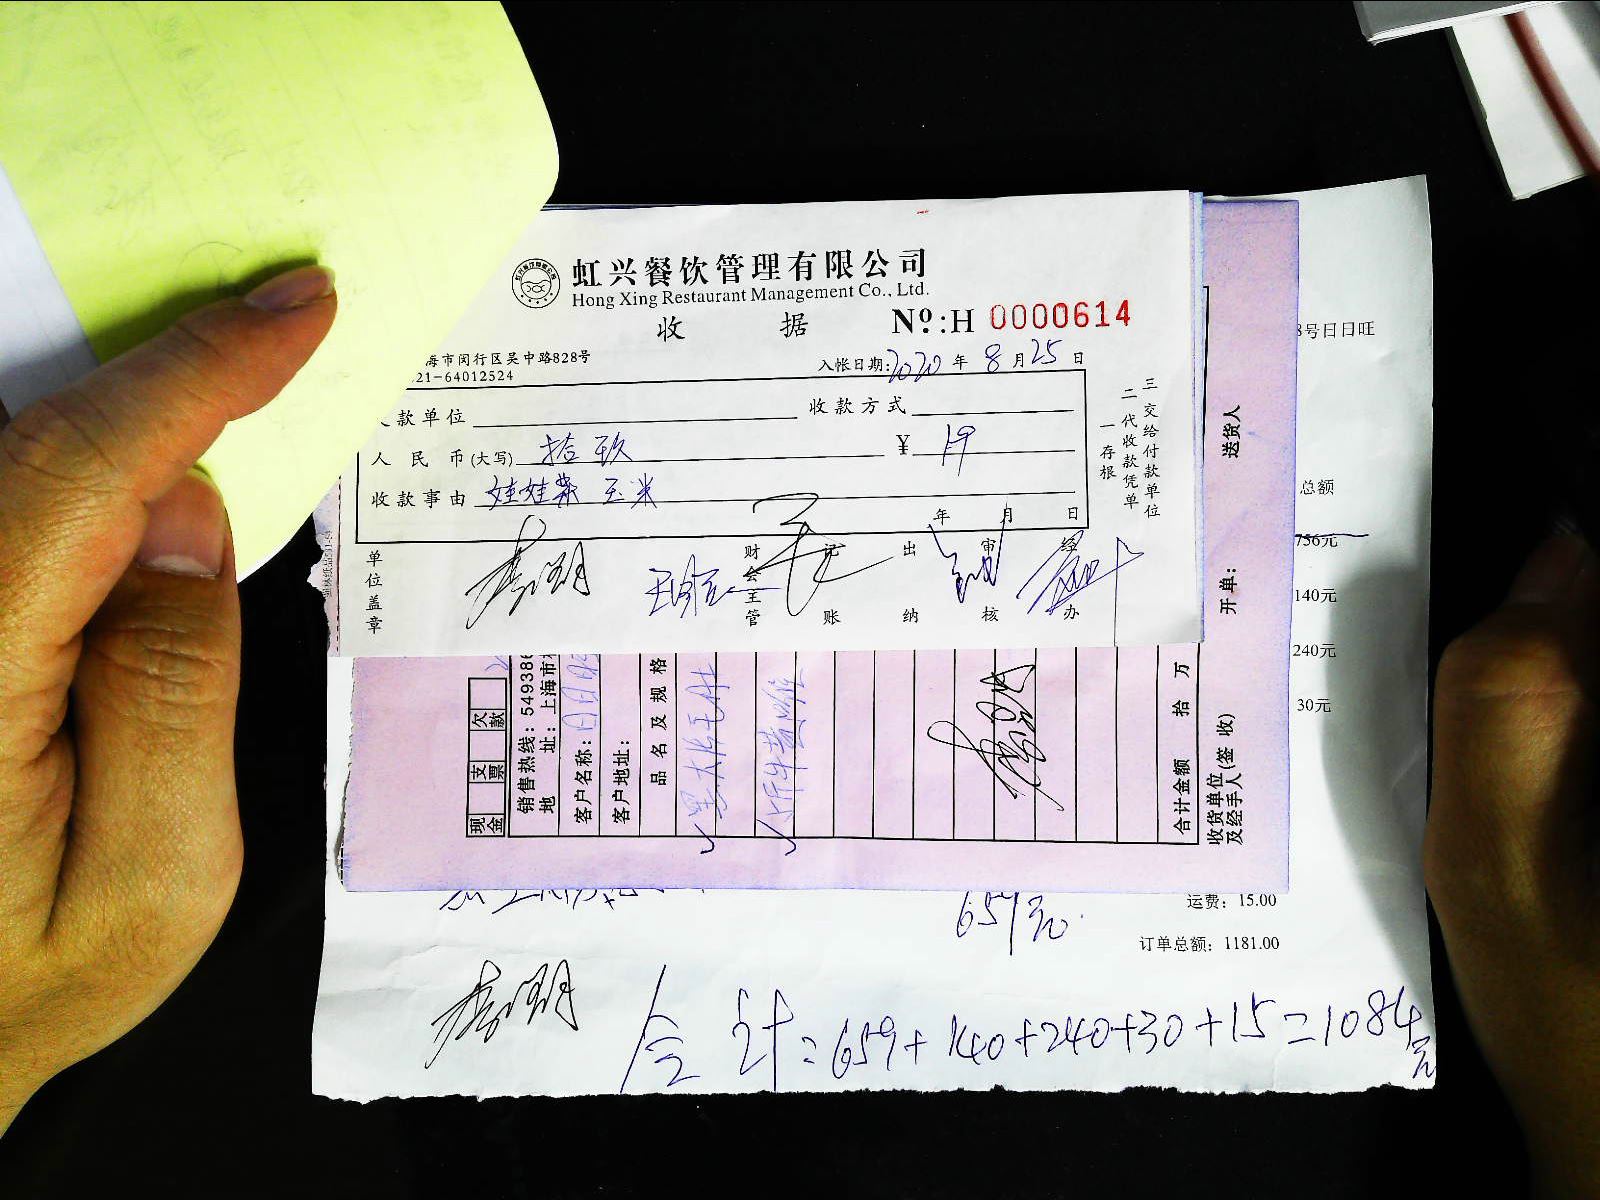 虹兴餐饮管理有限公司
Hong Xing Restaurant Management Co., Ltd.
收 据
Nº:H 0000614
海市闵行区吴中路828号
21-64012524
入帐日期:2020年8月25日
款单位 收款方式
人民币(大写) 拾玖 ¥ 19
收款事由 娃娃菜 玉米
年 月 日
一存根
二代收款凭单
三交给付款单位
单位盖章
财会主管
记账
出纳
审核
经办
现金 支票 欠款
销售热线: 549386
地 址: 上海市
客户名称: 日日旺
客户地址:
品名及规格
合计金额 拾 万
收货单位(签收)
及经手人
开单:
送货人
8号日日旺
总额
756元
140元
240元
30元
659元
运费: 15.00
订单总额: 1181.00
合计=659+140+240+30+15=1084元